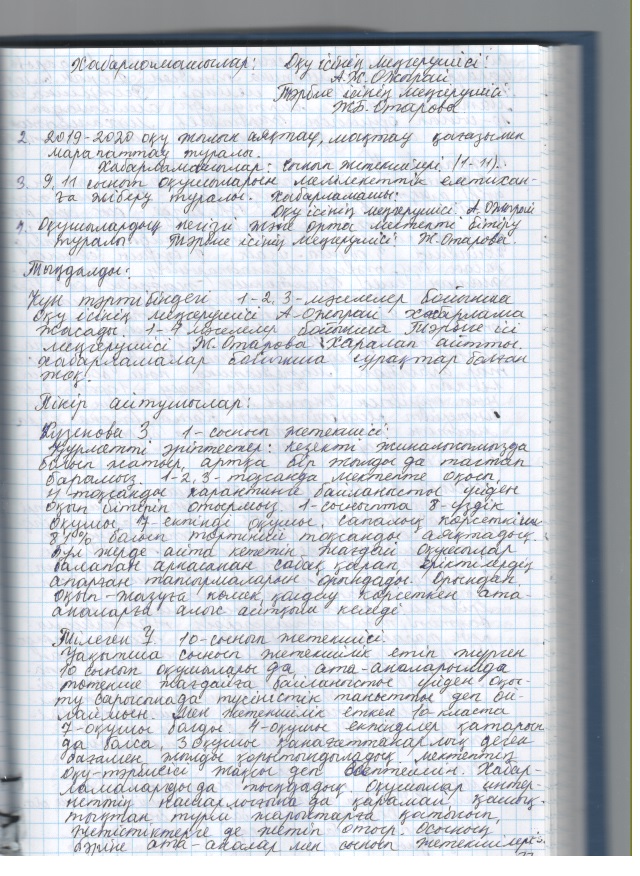 Хабарламашылар: Оқу ісінің меңгерушісі:
А.Ж.Ожрай
Тәрбие ісінің меңгерушісі:
Ж.Б.Отарова
2. 2019-2020 оқу жылын аяқтау, мақтау қағазымен
марапаттау туралы.
Хабарламашылар: сынып жетекшілері (1-11).
3. 9,11 сынып оқушыларын мемлекеттік емтихан-
ға жіберу туралы. Хабарламашы:
Оқу ісінің меңгерушісі А.Ожрай
4. Оқушылардың негізгі және орта мектепті бітіру
туралы Тәрбие ісінің меңгерушісі Ж.Отарова
Тыңдалды:
Күн тәртібіндегі 1-2,3-мәселелер бойынша
Оқу ісінің меңгерушісі А-Ожрай хабарлама
жасады. 1-4 мәселелер бойынша Тәрбие ісі
меңгерушісі Ж.Отарова Хабарлап айтты.
Хабарламалар бойынша сұрақтар болған
жоқ.
Пікір айтушылар:
З 1-сынып жетекшісі:
Құрметті әріптестер: кезекті жиналысымызда
болып жатыр, артқа бір жылды да тастап
барамыз. 1-2,3-тоқсанда мектепте оқып,
4 тоқсанды карантинге байланысты үйден
оқып бітіріп отырмыз. 1-сыныпта 8-үздік
оқушы, 7-екпінді оқушы, сапалық көрсеткіш
81% болып төртінші тоқсанды аяқтадық.
Бұл жерде айта кететін жағдай оқушылар
сабақ қарап,
апарған тапсырмаларын орындады. Орындап
оқып-жазуға көмек қолдау көрсеткен ата-
аналарға алғыс айтқым келеді
Тілеген Ұ 10-сынып жетекшісі
Уақытша сынып жетекшілік етіп жүрген
10 сынып оқушылары да ата-аналарымда
төтенше жағдайға байланысты үйден оқы-
ту барысында түсіністік танытты деп ой-
лаймын. Мен жетекшілік еткен 10-класта
7-оқушы болды 4-оқушы екпінділер қатарын
да болса, 3 оқушы қанағаттанарлық деген
бағамен жылды қорытындыладық. Мектептің
оқу-тәрбиесі жақсы деп есептеймін. Хабар-
ламаларды да тыңдадық оқушылар интер-
неттің нашарлығына да қарамай, қашық-
тықтан түрлі жарыстарға қатысып,
жетістіктерге де жетіп отыр. Осының
бәріне ата-аналар мен сынып жетекшілері